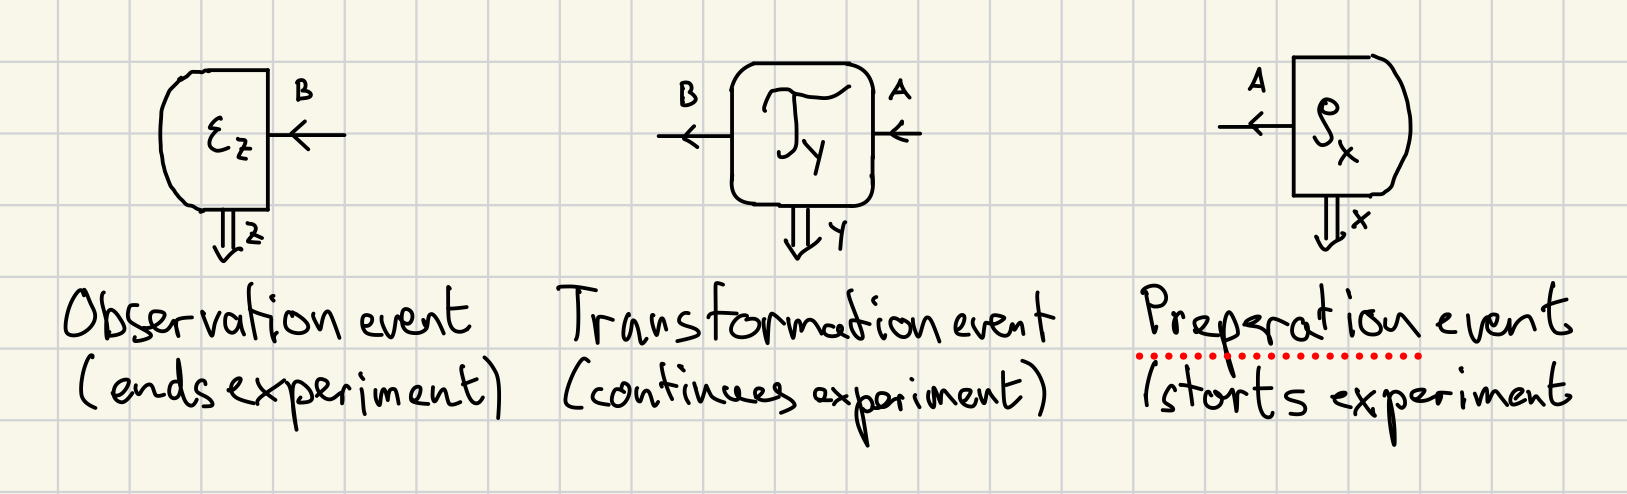 B
ε_z
z
B
A
T_y
y
A
ρ_x
x
Observation event
(ends experiment)
Transformation event
(continues experiment)
Preperation event
(storts experiment